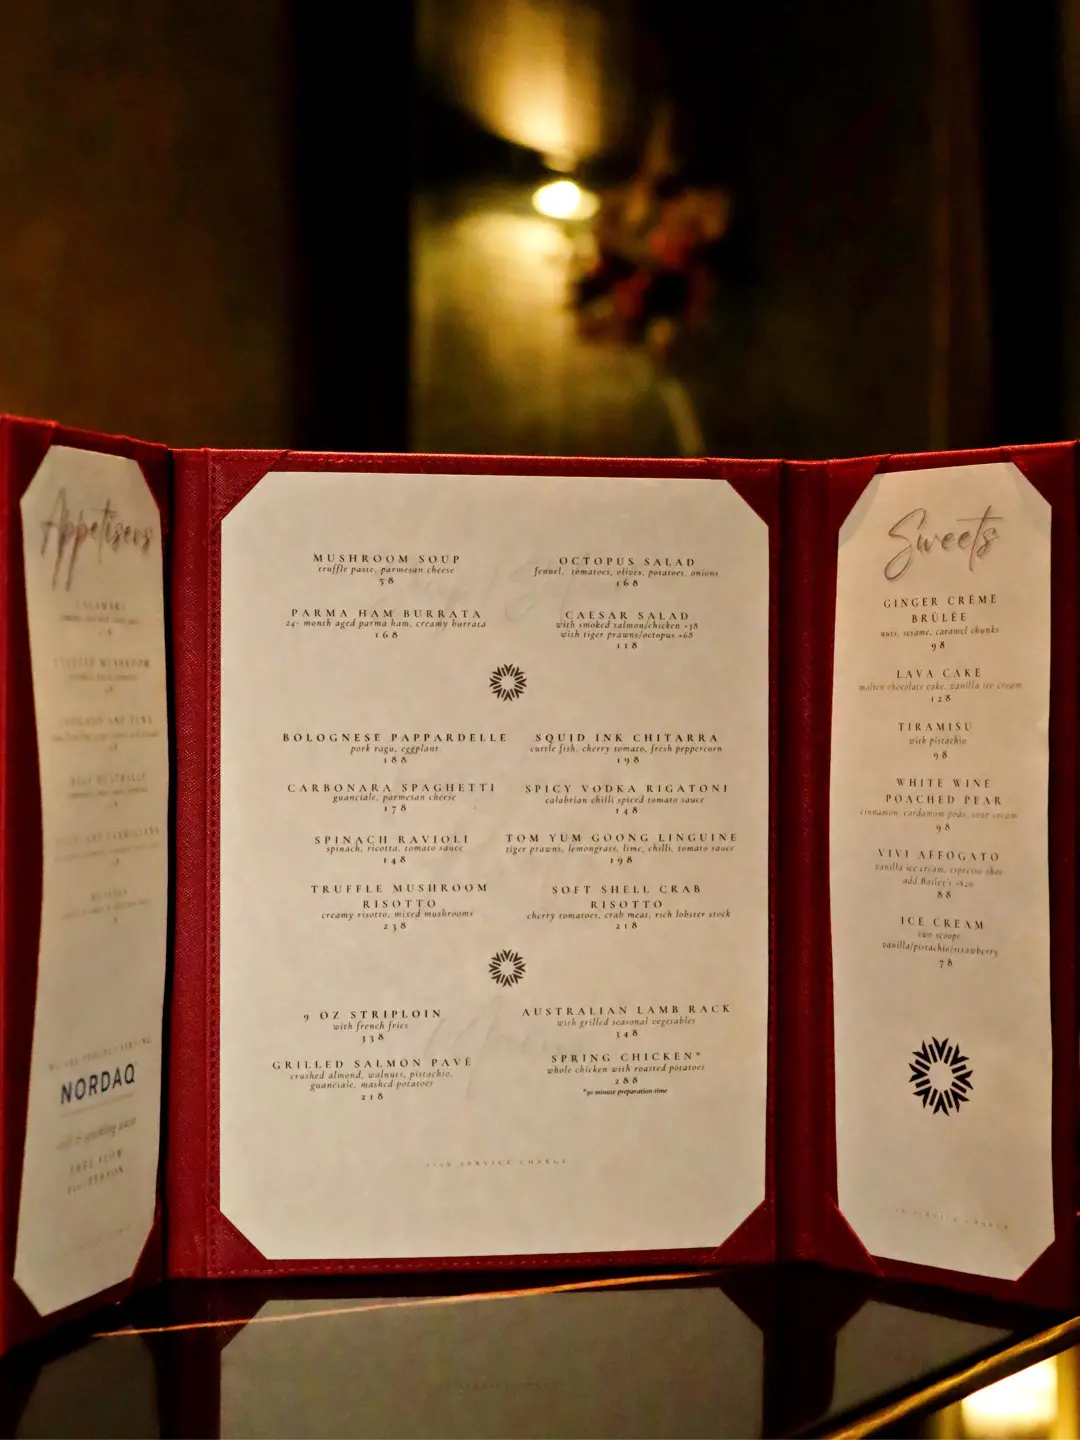 Appetisers
CALAMARI
AVOCADO AND TUNA
BEEF MEATBALLS
WE ARE PROUDLY SERVING
NORDAQ
still & sparkling water
FREE FLOW
PERSON
MUSHROOM SOUP
truffle paste, parmesan cheese
58
PARMA HAM BURRATA
24- month aged parma ham, creamy burrata
168
OCTOPUS SALAD
fennel, tomatoes, olives, potatoes, onions
168
CAESAR SALAD
with smoked salmon/chicken +38
with tiger prawns/octopus +68
118
BOLOGNESE PAPPARDELLE
pork ragu, eggplant
188
CARBONARA SPAGHETTI
guanciale, parmesan cheese
178
SPINACH RAVIOLI
spinach, ricotta, tomato sauce
148
TRUFFLE MUSHROOM
RISOTTO
creamy risotto, mixed mushrooms
238
SQUID INK CHITARRA
cuttle fish, cherry tomato, fresh peppercorn
198
SPICY VODKA RIGATONI
calabrian chilli spiced tomato sauce
148
TOM YUM GOONG LINGUINE
tiger prawns, lemongrass, lime, chilli, tomato sauce
198
SOFT SHELL CRAB
RISOTTO
cherry tomatoes, crab meat, rich lobster stock
218
9 OZ STRIPLOIN
with french fries
338
GRILLED SALMON PAVÉ
crushed almond, walnuts, pistachio,
guanciale, mashed potatoes
218
AUSTRALIAN LAMB RACK
with grilled seasonal vegetables
348
SPRING CHICKEN*
whole chicken with roasted potatoes
288
*30 minute preparation time
SERVICE CHARGE
Sweets
GINGER CRÈME
BRÛLÉE
nuts, sesame, caramel chunks
98
LAVA CAKE
molten chocolate cake, vanilla ice cream
128
TIRAMISU
with pistachio
98
WHITE WINE
POACHED PEAR
cinnamon, cardamom pods, sour cream
98
VIVI AFFOGATO
vanilla ice cream, espresso shot
add Bailey's +$20
88
ICE CREAM
two scoops
vanilla/pistachio/strawberry
78
SERVICE CHARGE